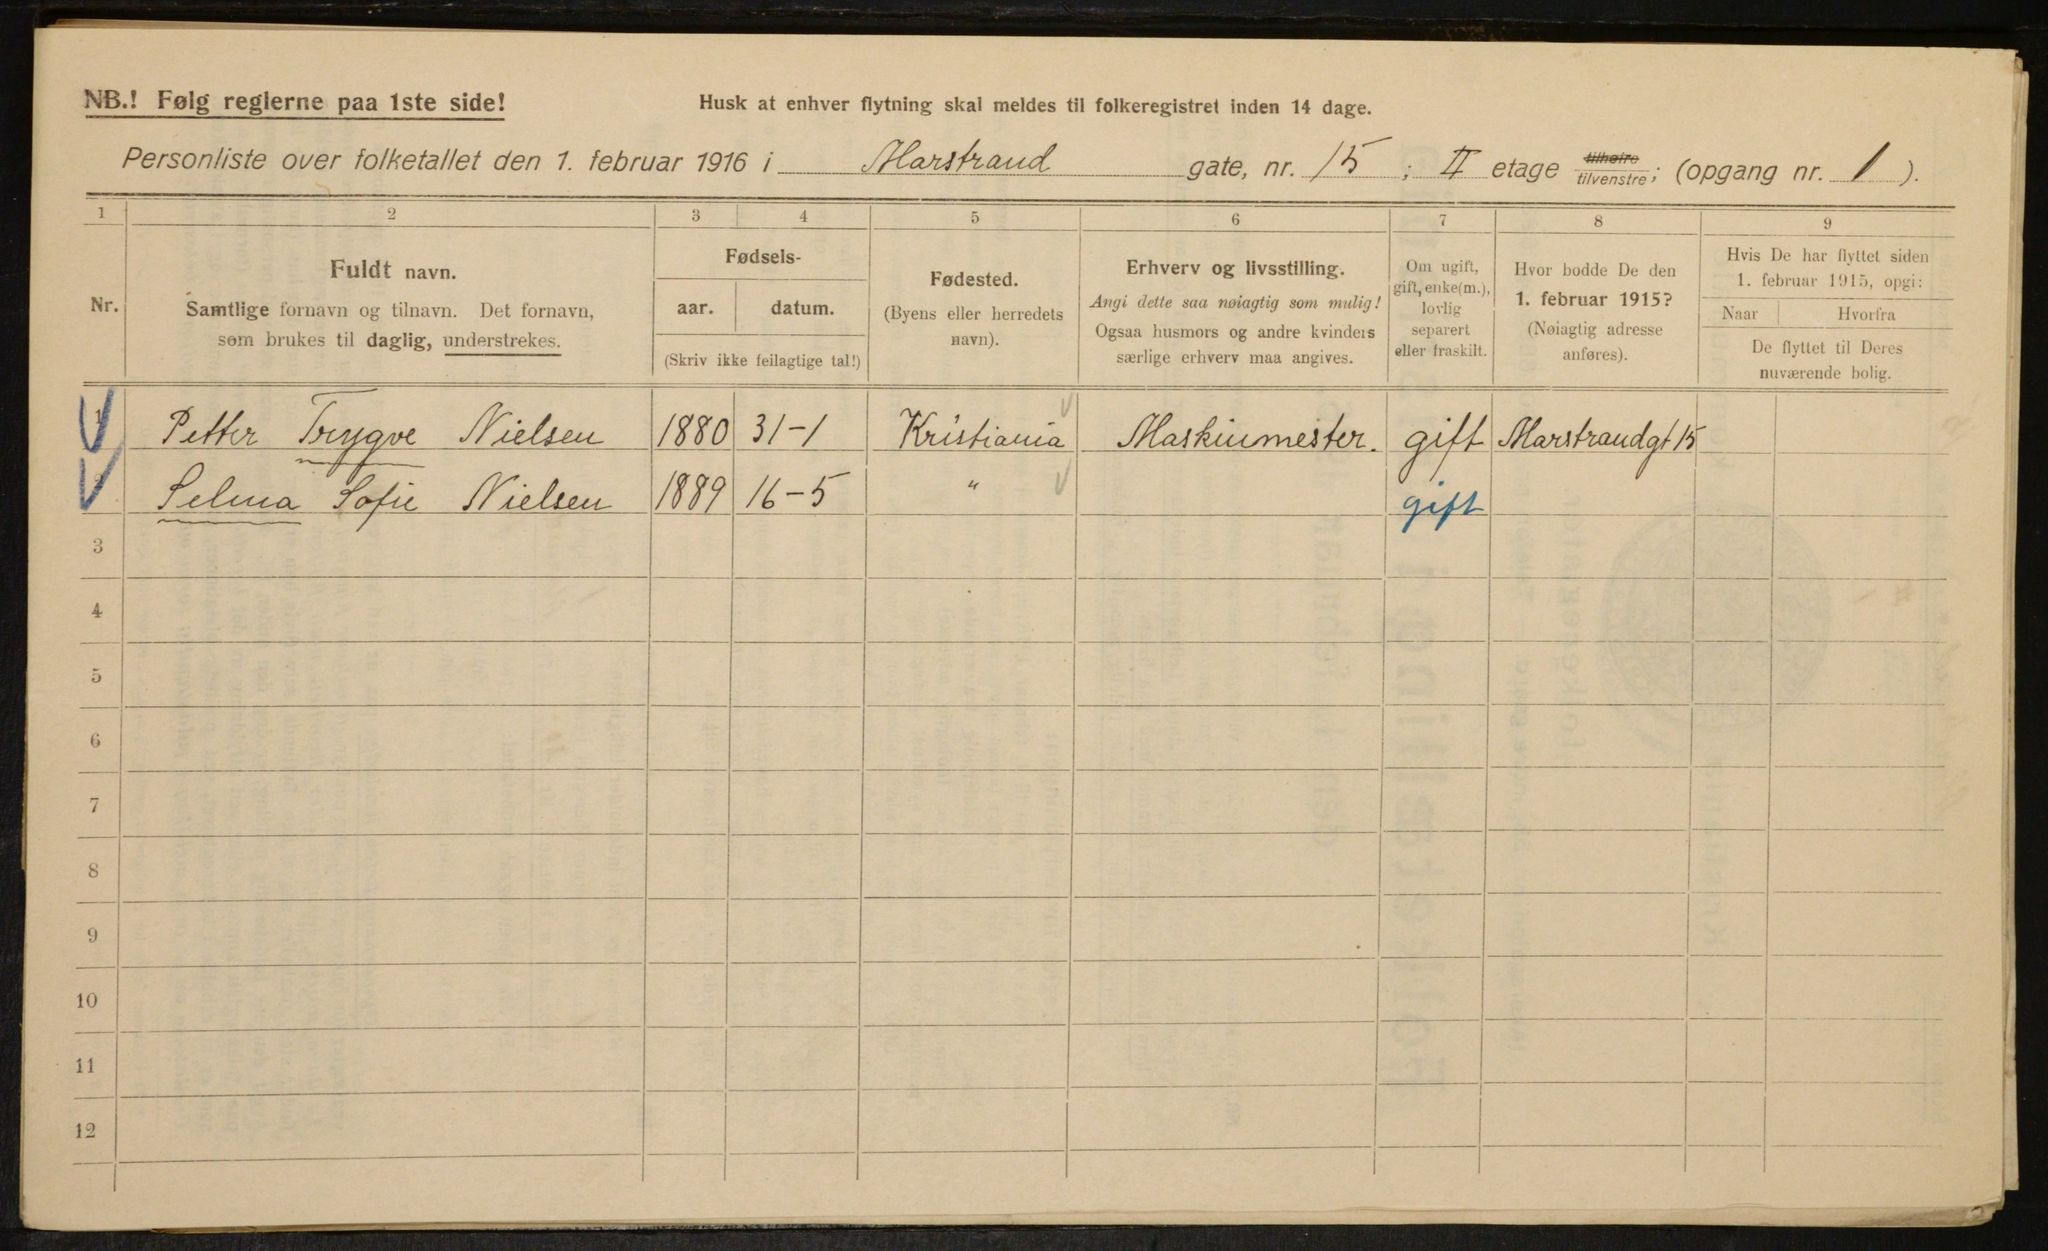 NB.! Følg reglerne paa 1ste side!
Husk at enhver flytning skal meldes til folkeregistret inden 14 dage.
Personliste over folketallet den 1. februar 1916 i Marstrand gate, nr. 15 ; II etage tilhøire tilvenstre; (opgang nr. 1 ).
1 2 3 4 5 6 7 8 9
Nr.
Fuldt navn.
Samtlige fornavn og tilnavn. Det fornavn,
som brukes til daglig, understrekes.
Fødsels-
aar. datum.
(Skriv ikke feilagtige tal!)
Fødested.
(Byens eller herredets
navn).
Erhverv og livsstilling.
Angi dette saa nøiagtig som mulig!
Ogsaa husmors og andre kvinders
særlige erhverv maa angives.
Om ugift,
gift, enke(m.),
lovlig
separert
eller fraskilt.
Hvor bodde De den
1. februar 1915?
(Nøiagtig adresse
anføres).
Hvis De har flyttet siden
1. februar 1915, opgi:
Naar Hvorfra
De flyttet til Deres
nuværende bolig.
1 Petter Trygve Nielsen 1880 31-1 Kristiania Maskinmester. gift Marstrandgt 15
Selma Sofie Nielsen 1889 16-5 " gift
3
4
5
6
7
8
9
10
11
12